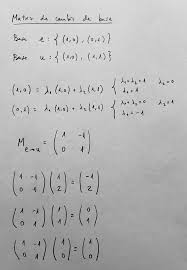 Matriz de cambio de base
Base e : { (1,0) , (0,1) }
Base u : { (1,0) , (1,1) }
(1,0) = λ₁ (1,0) + λ₂ (1,1) { λ₁+λ₂=1 λ₂=0
λ₁=1
(0,1) = λ₁ (1,0) + λ₂ (1,1) { λ₁+λ₂=0
λ₁=-1
M e→u = ( 1 -1
0 1 )
( 1 -1 ) ( 1 ) = ( -1 )
( 0 1 ) ( 2 ) ( 2 )
( 1 -1 ) ( 1 ) = ( 0 )
( 0 1 ) ( 1 ) ( 1 )
( 1 -1 ) ( 1 ) = ( 1 )
( 0 1 ) ( 0 ) ( 0 )